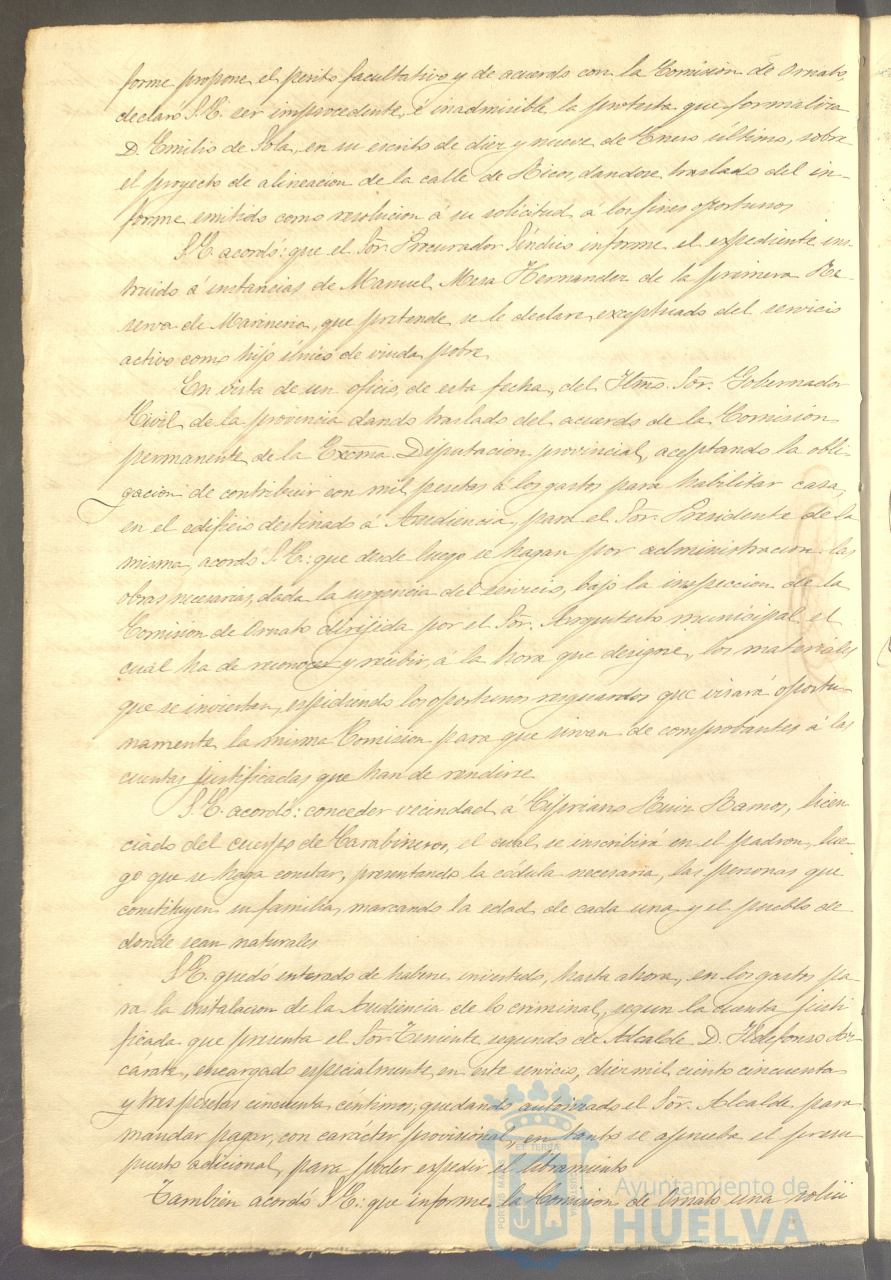 forme propone el perito facultativo y de acuerdo con la Comision de Ornato,
declaró S.E. ser improcedente, é inadmisible la protesta que formaliza
D. Emilio de Sola, en su escrito de diez y nueve de Enero último, sobre
el proyecto de alineacion de la calle de Ricos, dandose traslado del in-
forme emitido como resolucion á su solicitud á los fines oportunos
S.E. acordó: que el Sor. Procurador Síndico informe el expediente ins
truido á instancias de Manuel Mesa Hernandez de la primera Re-
serva de Marineria, que pretende se le declare exceptuado del servicio
activo como hijo único de viuda pobre
En vista de un oficio, de esta fecha, del Iltmo. Sor. Gobernador
Civil de la provincia dando traslado del acuerdo de la Comision
permanente de la Excma. Diputacion provincial, aceptando la obli-
gacion de contribuir con mil pesetas á los gastos para habilitar casa,
en el edificio destinado á Audiencia, para el Sor. Presidente de la
misma, acordó S.E.: que desde luego se hagan por administracion las
obras necesarias, dada la urgencia del servicio, bajo la inspeccion de la
Comision de Ornato dirijida por el Sor. Arquitecto municipal el
cual ha de reconocer y recibir, á la hora que designe, los materiales
que se inviertan, espidiendo los oportunos resguardos que visará oportu-
namente la misma Comision para que sirvan de comprobantes á las
cuentas justificadas que han de rendirse
S.E. acordó: conceder vecindad á Cipriano Ruiz Ramos, licen
ciado del cuerpo de Carabineros, el cual se inscribirá en el padron, lue-
go que se haga constar, presentando la cédula necesaria, las personas que
constituyen su familia, marcando la edad de cada una y el pueblo de
donde sean naturales
S.E. quedó enterado de haberse invertido, hasta ahora, en los gastos pa-
ra la instalacion de la Audiencia de lo criminal, segun la cuenta justi
ficada que presenta el Sor. Teniente segundo de Alcalde D. Ildefonso Az-
cárate, encargado especialmente en este servicio, diez mil ciento cincuenta
y tres pesetas cincuenta céntimos; quedando autorizado el Sor. Alcalde para
mandar pagar, con carácter provisional, en tanto se aprueba el presu
puesto adicional, para poder expedir el libramiento
Tambien acordó S.E.: que informe la Comision de Ornato una solici
Ayuntamiento de
HUELVA